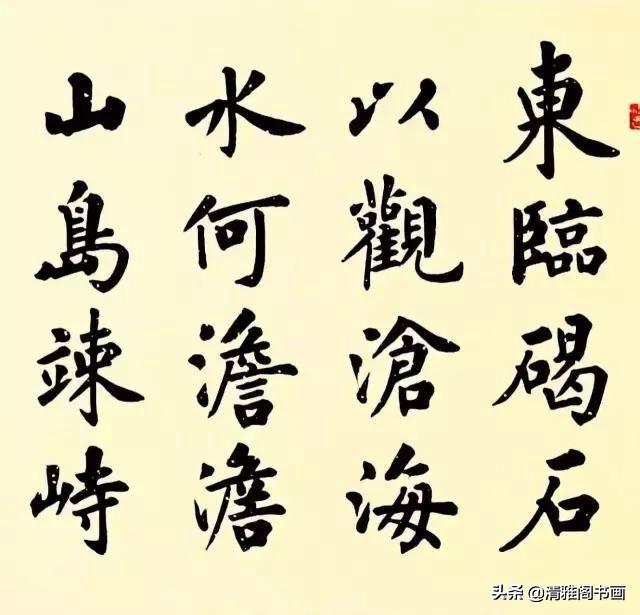 東臨碣石
以觀滄海
水何澹澹
山島竦峙
头条 @清雅阁书画